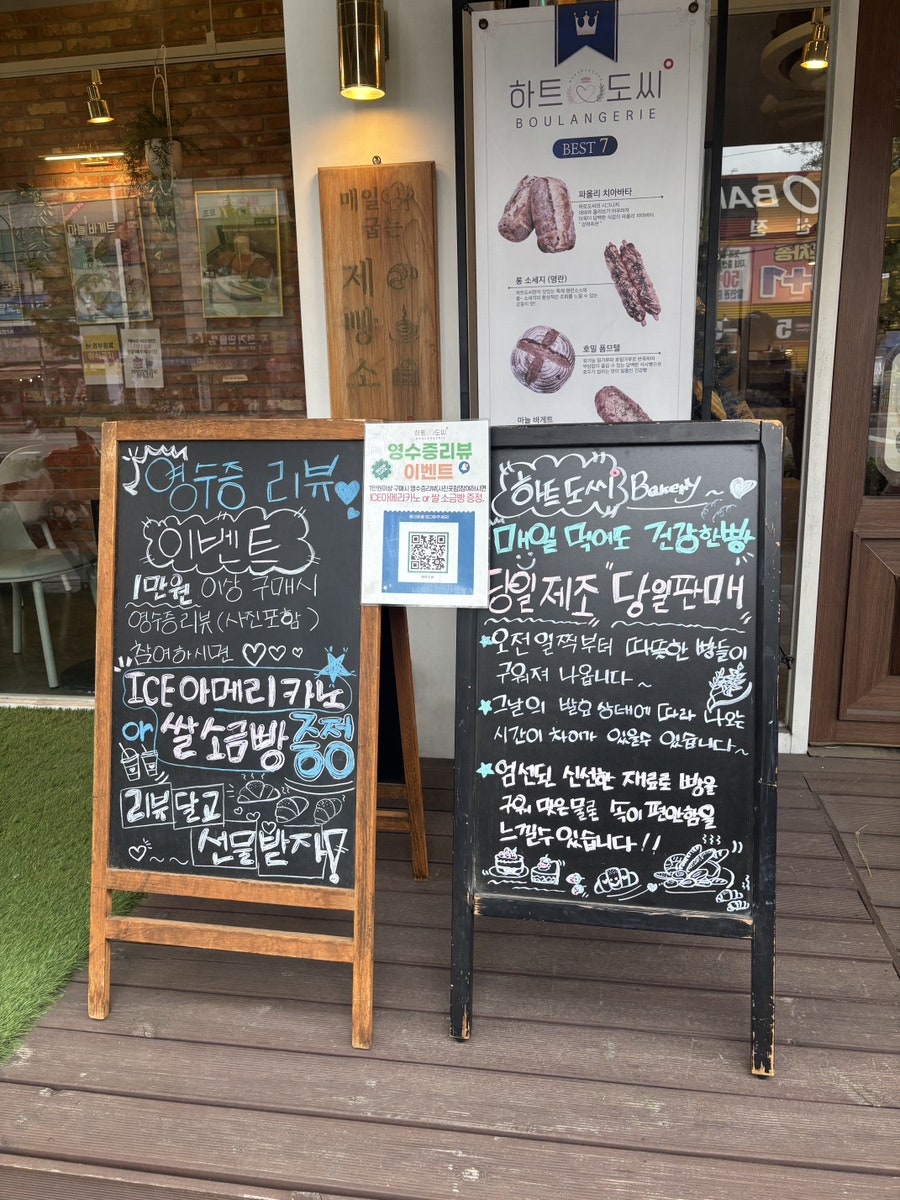 하트도씨
BOULANGERIE
BEST 7
파올리 치아바타
롱 소세지 (명란)
호밀 품므텔
마늘 바게트
매일
굽
제
빵
하트도씨
BOULANGERIE
영수증리뷰
이벤트
1만원이상 구매시 영수증리뷰(사진포함)참여하시면
ICE아메리카노 or 쌀 소금빵 증정.
영수증 리뷰
이벤트
1만원 이상 구매시
영수증리뷰(사진포함)
참여하시면
ICE아메리카노
or 쌀소금빵 증정
리뷰 달고
선물받자!
하트도씨 Bakery~
매일 먹어도 건강한빵
당일제조 당일판매
오전 일찍부터 따뜻한 빵들이
구워져 나옵니다~
그날의 발효 상태에 따라 나오는
시간이 차이가 있을수 있습니다~
엄선된 신선한 재료로 빵을
구워 맛은물론 속이 편안함을
느낄수있습니다!!